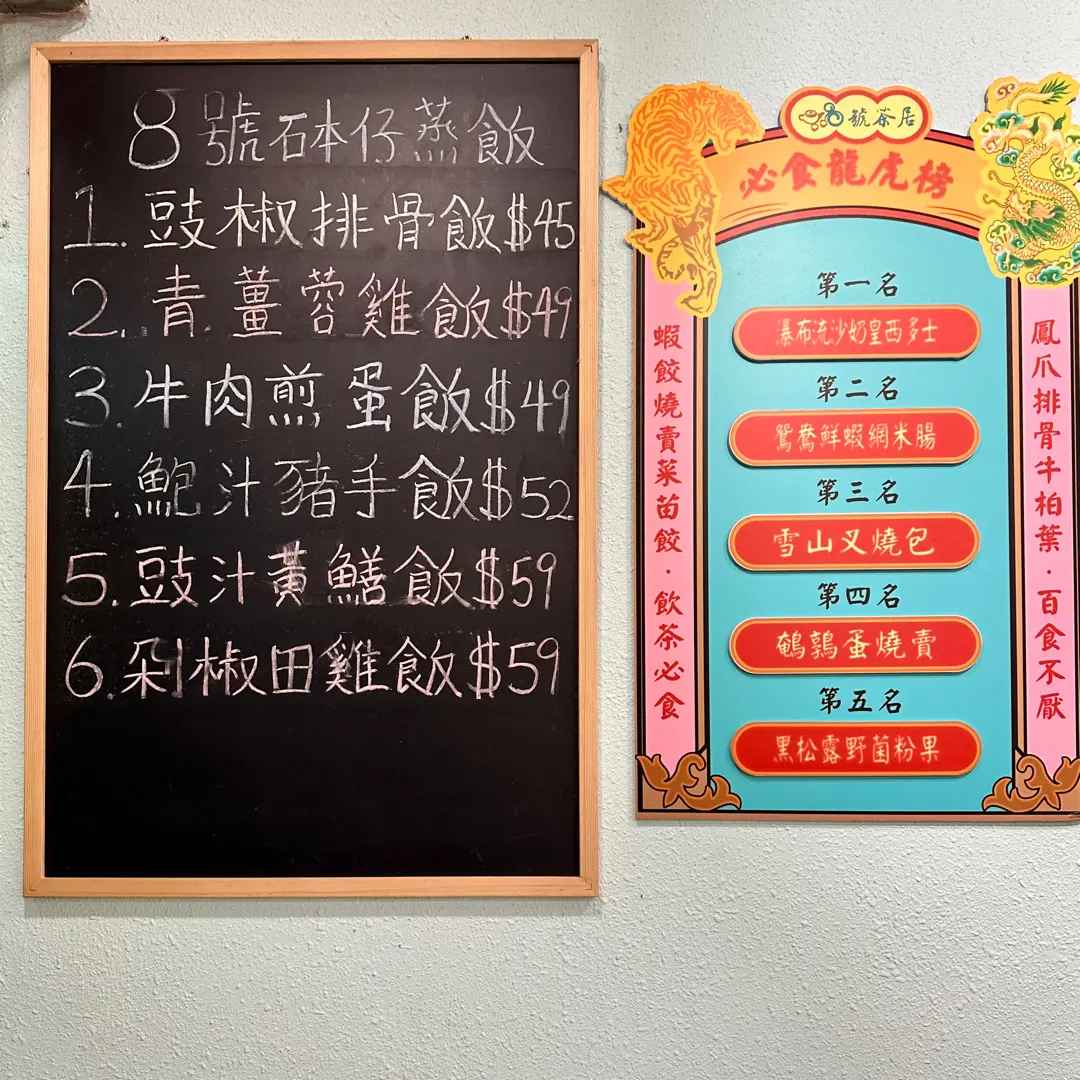 8號砵仔蒸飯
1. 豉椒排骨飯$45
2. 青薑蓉雞飯$49
3. 牛肉煎蛋飯$49
4. 鮑汁豬手飯$52
5. 豉汁黃鱔飯$59
6. 剁椒田雞飯$59
8號茶居
必食龍虎榜
蝦餃燒賣菜苗餃·飲茶必食
第一名
瀑布流沙奶皇西多士
第二名
鴛鴦鮮蝦網米腸
第三名
雪山叉燒包
第四名
鵪鶉蛋燒賣
第五名
黑松露野菌粉果
鳳爪排骨牛柏葉·百食不厭